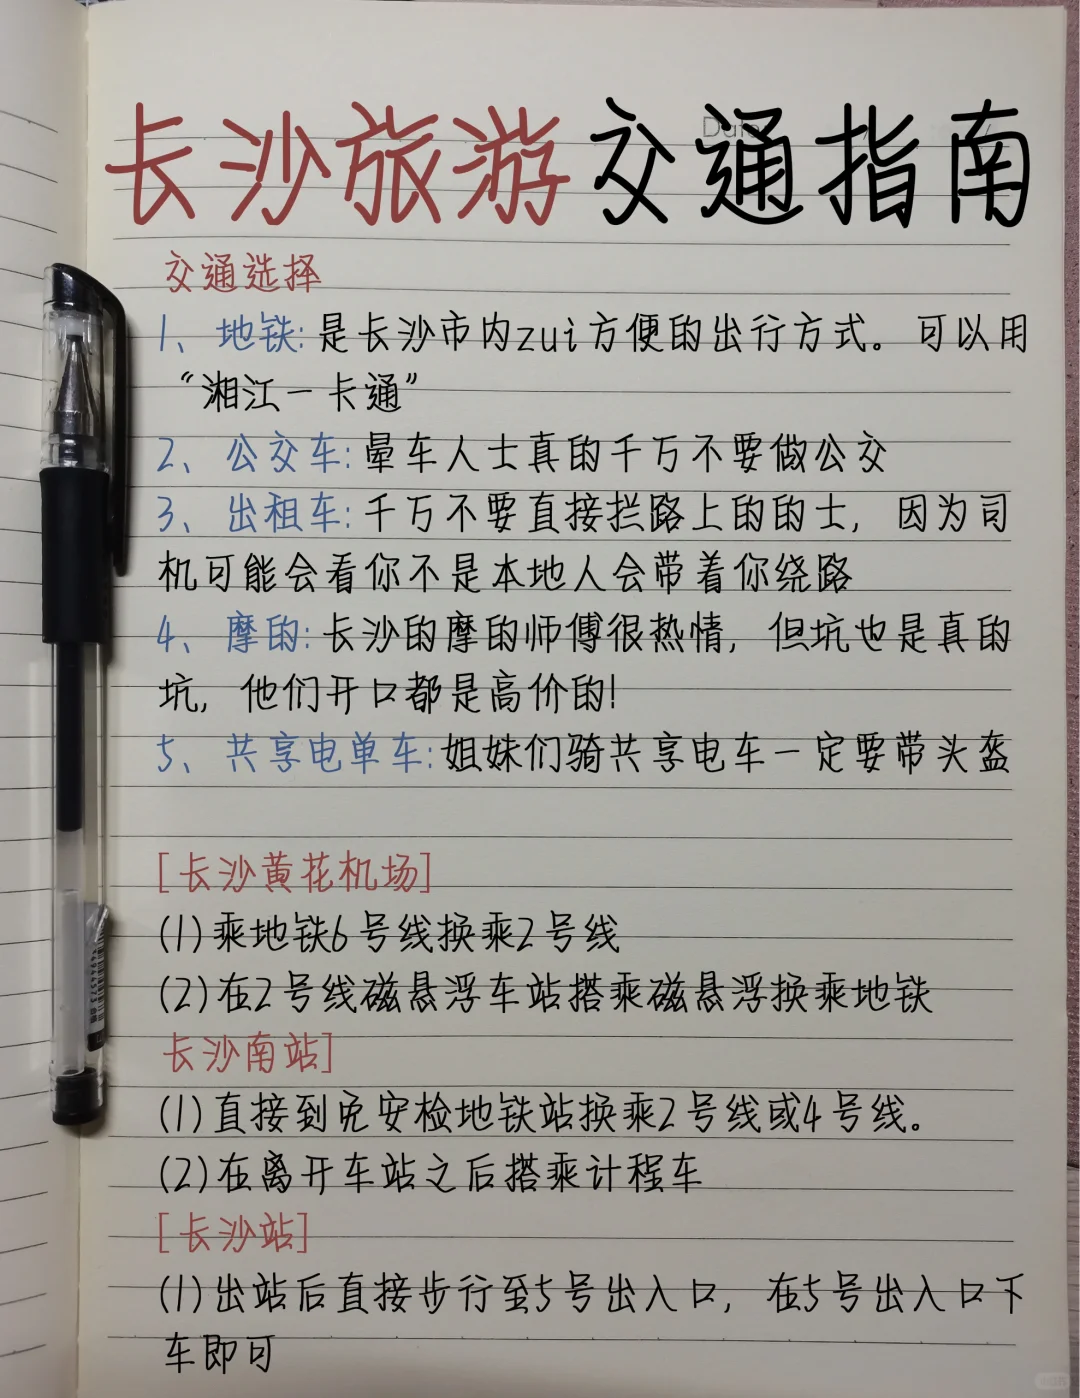 长沙旅游交通指南
交通选择
1、地铁:是长沙市内zui方便的出行方式。可以用
“湘江一卡通”
2、公交车:晕车人士真的千万不要做公交
3、出租车:千万不要直接拦路上的的士，因为司
机可能会看你不是本地人会带着你绕路
4、摩的:长沙的摩的师傅很热情，但坑也是真的
坑，他们开口都是高价的!
5、共享电单车:姐妹们骑共享电车一定要带头盔
[长沙黄花机场]
(1)乘地铁6号线换乘2号线
(2)在2号线磁悬浮车站搭乘磁悬浮换乘地铁
长沙南站]
(1)直接到免安检地铁站换乘2号线或4号线。
(2)在离开车站之后搭乘计程车
[长沙站]
(1)出站后直接步行至5号出入口，在5号出入口下
车即可